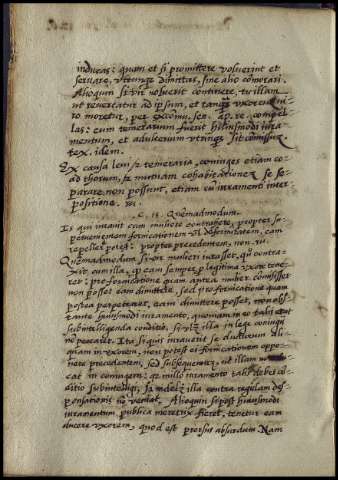 inducas: quam et si promittere voluerint et
seruare, vtrinque dimittas, sine alio commorari.
Alioquin si vir noluerit continere, tu illam
ut reuertatur ad ipsum, et tanquam vxor cum vi-
ro moretur, per excōmu. sen. ap. re. compel-
las: cum temerarium fuerit huiusmodi iura-
mentum, et adulterum vtrinque sit commissum.
tex. idem.
Ex causa leui et temeraria, coniuges etiam co-
ad thorum, et mutuam cohabitationem se se-
parare non possunt, etiam cū iuramenti inter
positione.
C. 15. Quemadmodum.
Is qui iurauit cum muliere contrahere, propter su-
peruenientem fornicationem vel deformitatem, eam
repellere potest: propter precedentem, non.
Quemadmodum si vir mulieri iurasset, quod contra-
xit cum illa, quod eam semper pro legitima vxore tene-
ret: pro fornicatione quam antea mulier commisisset
non posset eam dimittere, sed pro fornicatione quam
postea perpetraret, eam dimittere posset, non obs-
tante huiusmodi iuramento, quoniam in eo talis est
subintelligenda conditio, si videlicet illa in lege coniugij
nō peccaret. Ita si quis iurauerit se ducturum ali-
quam in vxorem, non potest ei fornicationem oppo-
nere precedentem, sed subsequentem, ut illam
cat in coniugem: quia in illo iuramento talis debet co-
ditio subintelligi, si videlicet illa contra regulam des-
ponsationis nō veniat. Alioquin si post huiusmodi
iuramentum publica meretrix fieret, teneretur eam
ducere vxorem, quod est prorsus absurdum. Nam